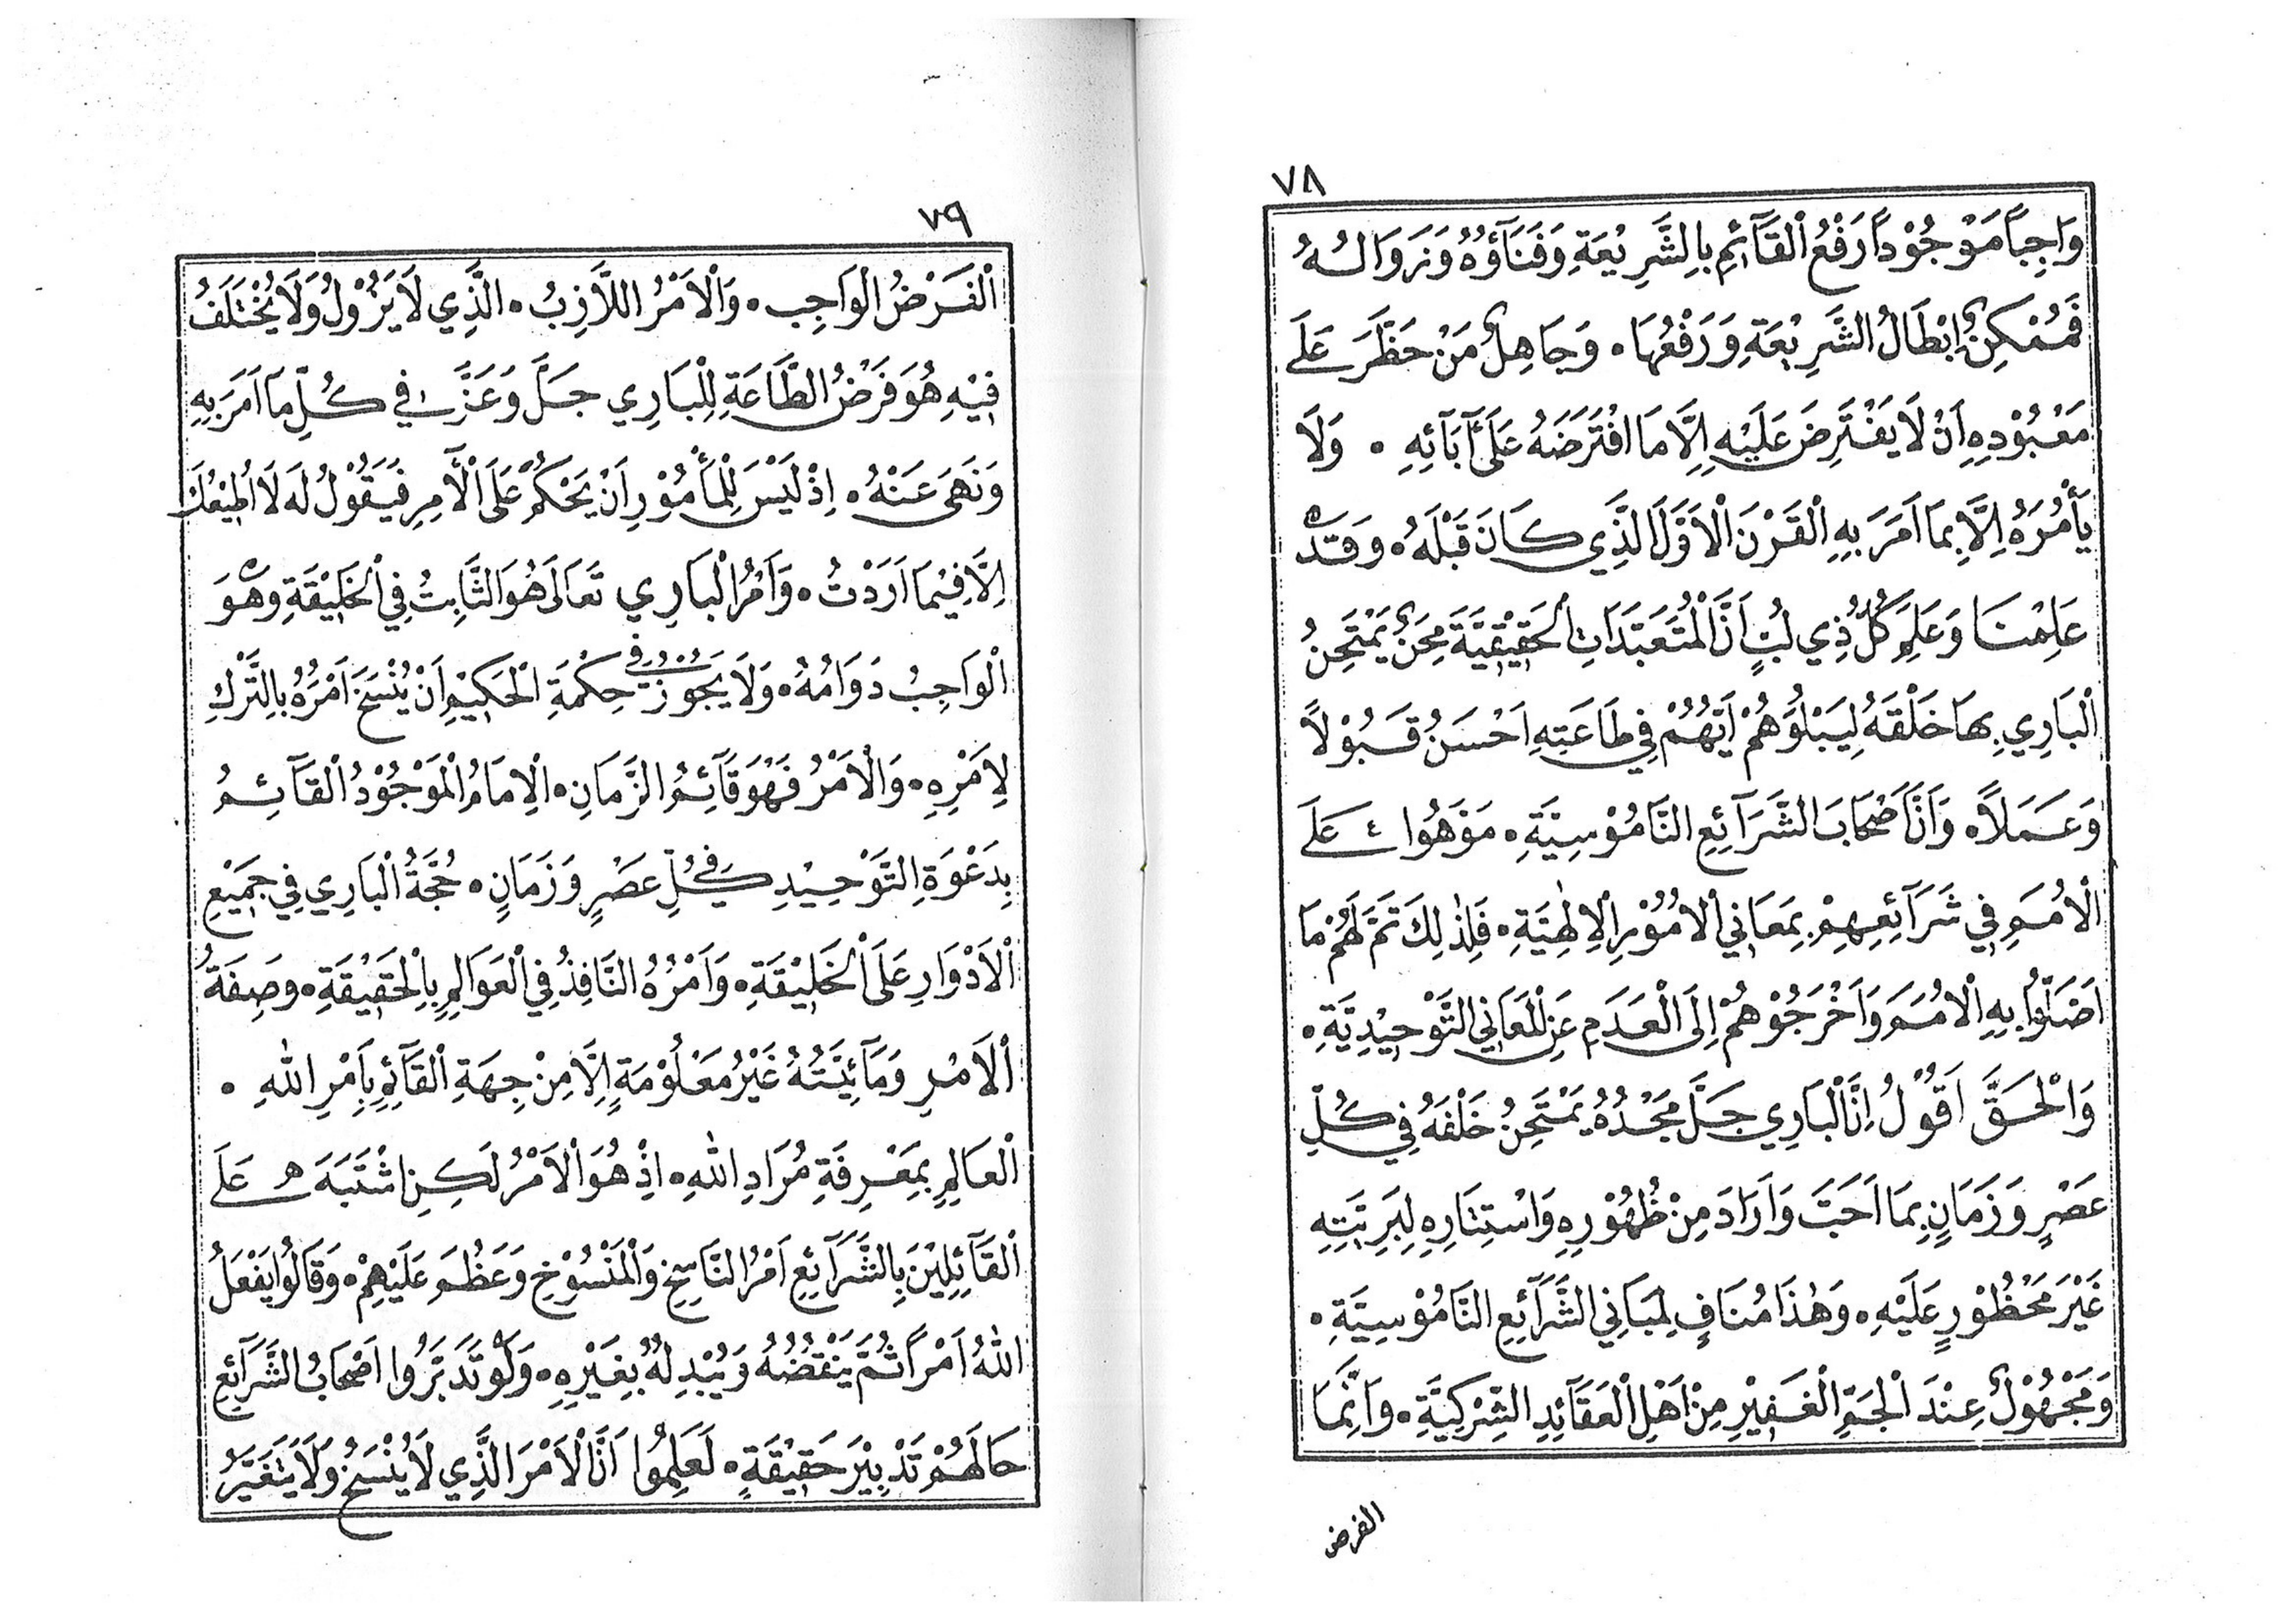 ٧٨
وَاجِباً مَوْجُوْداً رَفْعُ الْقَآئِمِ بِالشَّرِيْعَةِ وَفَنَآؤُهُ وَزَوَالُهُ
فَمُمْكِنٌ اِبْطَالُ الشَّرِيْعَةِ وَرَفْعُهَا ۰ وَجَاهِلٌ مَنْ حَظَّرَ عَلَى
مَعْبُوْدِهِ اَنْ لَا يَفْتَرِضَ عَلَيْهِ اِلَّا مَا افْتَرَضَهُ عَلَى آبَائِهِ ۰ وَلَا
يَأْمُرُهُ اِلَّا بِمَا اَمَرَ بِهِ الْقَرْنَ الْاَوَّلَ الَّذِي كَانَ قَبْلَهُ ۰ وَقَدْ
عَلِمْنَا وَعَلِمَ كُلُّ ذِي لُبٍّ اَنَّ الْمُتَعَبَّدَاتِ الْحَقِيْقِيَّةَ مِحَنٌ يَمْتَحِنُ
الْبَارِي بِهَا خَلْقَهُ لِيَبْلُوَهُمْ اَيُّهُمْ فِي طَاعَتِهِ اَحْسَنُ قَبُوْلاً
وَعَمَلاً ۰ وَاَنَّ اَصْحَابَ الشَّرَآئِعِ النَّامُوْسِيَّةِ ۰ مَوَّهُوا عَلَى
الْاُمَمِ فِي شَرَآئِعِهِمْ بِمَعَانِي الْاُمُوْرِ الْاِلٰهِيَّةِ ۰ فَلِذٰلِكَ تَمَّ لَهُمْ مَا
اَضَلُّوا بِهِ الْاُمَمَ وَاَخْرَجُوْهُمْ اِلَى الْعَدَمِ عَنِ الْمَعَانِي التَّوْحِيْدِيَّةِ ۰
وَالْحَقَّ اَقُوْلُ اِنَّ الْبَارِي جَلَّ مَجْدُهُ يَمْتَحِنُ خَلْقَهُ فِي كُلِّ
عَصْرٍ وَزَمَانٍ بِمَا اَحَبَّ وَاَرَادَ مِنْ ظُهُوْرِهِ وَاسْتِتَارِهِ لِبَرِيَّتِهِ
غَيْرَ مَحْظُوْرٍ عَلَيْهِ ۰ وَهٰذَا مُنَافٍ لِمَبَانِي الشَّرَآئِعِ النَّامُوْسِيَّةِ ۰
وَمَجْهُوْلٌ عِنْدَ الْجَمِّ الْغَفِيْرِ مِنْ اَهْلِ الْعَقَآئِدِ الشِّرْكِيَّةِ ۰ وَاِنَّمَا
الفرض
٧٩
الْفَرْضُ الْوَاجِب ۰ وَالْاَمْرُ اللَّازِبُ ۰ الَّذِي لَا يَزُوْلُ وَلَا يُخْتَلَفُ
فِيْهِ هُوَ فَرْضُ الطَّاعَةِ لِلْبَارِي جَلَّ وَعَزَّ فِي كُلِّ مَا اَمَرَ بِهِ
وَنَهَى عَنْهُ ۰ اِذْ لَيْسَ لِلْمَأْمُوْرِ اَنْ يَحْكُمَ عَلَى الْآمِرِ فَيَقُوْلُ لَهُ لَا اُطِيْعُكَ
اِلَّا فِيْمَا اَرَدْتُ ۰ وَاَمْرُ الْبَارِي تَعَالَى هُوَ الثَّابِتُ فِي الْخَلِيْقَةِ وَهُوَ
الْوَاجِبُ دَوَامُهُ ۰ وَلَا يَجُوْزُ فِي حِكْمَةِ الْحَكِيْمِ اَنْ يُنْسَخَ اَمْرُهُ بِالتَّرْكِ
لِاَمْرِهِ ۰ وَالْاَمْرُ فَهُوَ قَآئِمُ الزَّمَانِ ۰ الْاِمَامُ الْمَوْجُوْدُ الْقَآئِمُ
بِدَعْوَةِ التَّوْحِيْدِ فِي كُلِّ عَصْرٍ وَزَمَانٍ ۰ حُجَّةُ الْبَارِي فِي جَمِيْعِ
الْاَدْوَارِ عَلَى الْخَلِيْقَةِ ۰ وَاَمْرُهُ النَّافِذُ فِي الْعَوَالِمِ بِالْحَقِيْقَةِ ۰ وَصِفَةُ
الْاَمْرِ وَمَآئِيَّتُهُ غَيْرُ مَعْلُوْمَةٍ اِلَّا مِنْ جِهَةِ الْقَآئِمِ بِاَمْرِ اللّٰهِ ۰
الْعَالِمِ بِمَعْرِفَةِ مُرَادِ اللّٰهِ ۰ اِذْ هُوَ الْاَمْرُ لَكِنِ اشْتَبَهَ عَلَى
الْقَآئِلِيْنَ بِالشَّرَآئِعِ اَمْرُ النَّاسِخِ وَالْمَنْسُوْخِ وَعَظُمَ عَلَيْهِمْ ۰ وَقَالُوا يَفْعَلُ
اللّٰهُ اَمْراً ثُمَّ يَنْقُضُهُ وَيُبْدِلُهُ بِغَيْرِهِ ۰ وَلَوْ تَدَبَّرُوا اَصْحَابُ الشَّرَآئِعِ
حَالَهُمْ تَدْبِيْرَ حَقِيْقَةٍ ۰ لَعَلِمُوا اَنَّ الْاَمْرَ الَّذِي لَا يُنْسَخُ وَلَا يَتَغَيَّرُ